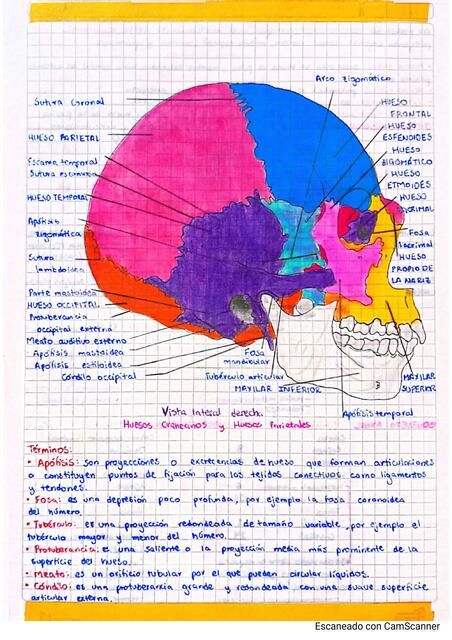 Arco zigomático
Sutura Coronal
HUESO
FRONTAL
HUESO
ESFENOIDES
HUESO PARIETAL
HUESO
ZIGOMÁTICO
Escama temporal
Sutura escamosa
HUESO
ETMOIDES
HUESO TEMPORAL
HUESO
LACRIMAL
Apófisis
zigomática
Fosa
lacrimal
Sutura
lambdoidea
HUESO
PROPIO DE
LA NARIZ
Parte mastoidea
HUESO OCCIPITAL
Protuberancia
occipital externa
Meato auditivo externo
Apófisis mastoidea
Apófisis estiloidea
Cóndilo occipital
Fosa
mandibular
Tubérculo articular
MAXILAR INFERIOR
MAXILAR
SUPERIOR
Vista lateral derecha
Huesos Craneanos y Huesos Parietales
Apófisis temporal
Términos:
• Apófisis: son proyecciones o excrecencias de hueso que forman articulaciones
o constituyen puntos de fijación para los tejidos conectivos como ligamentos
y tendones.
• Fosa: es una depresión poco profunda, por ejemplo la fosa coronoidea
del húmero.
• Tubérculo: es una proyección redondeada de tamaño variable, por ejemplo el
tubérculo mayor y menor del húmero.
• Protuberancia: es una saliente o la proyección média más prominente de la
superficie del hueso.
• Meato: es un orificio tubular por el que pueden circular líquidos.
• Cóndilo: es una protuberanzia grande y redondeada con una suave superficie
articular externa.
Escaneado con CamScanner